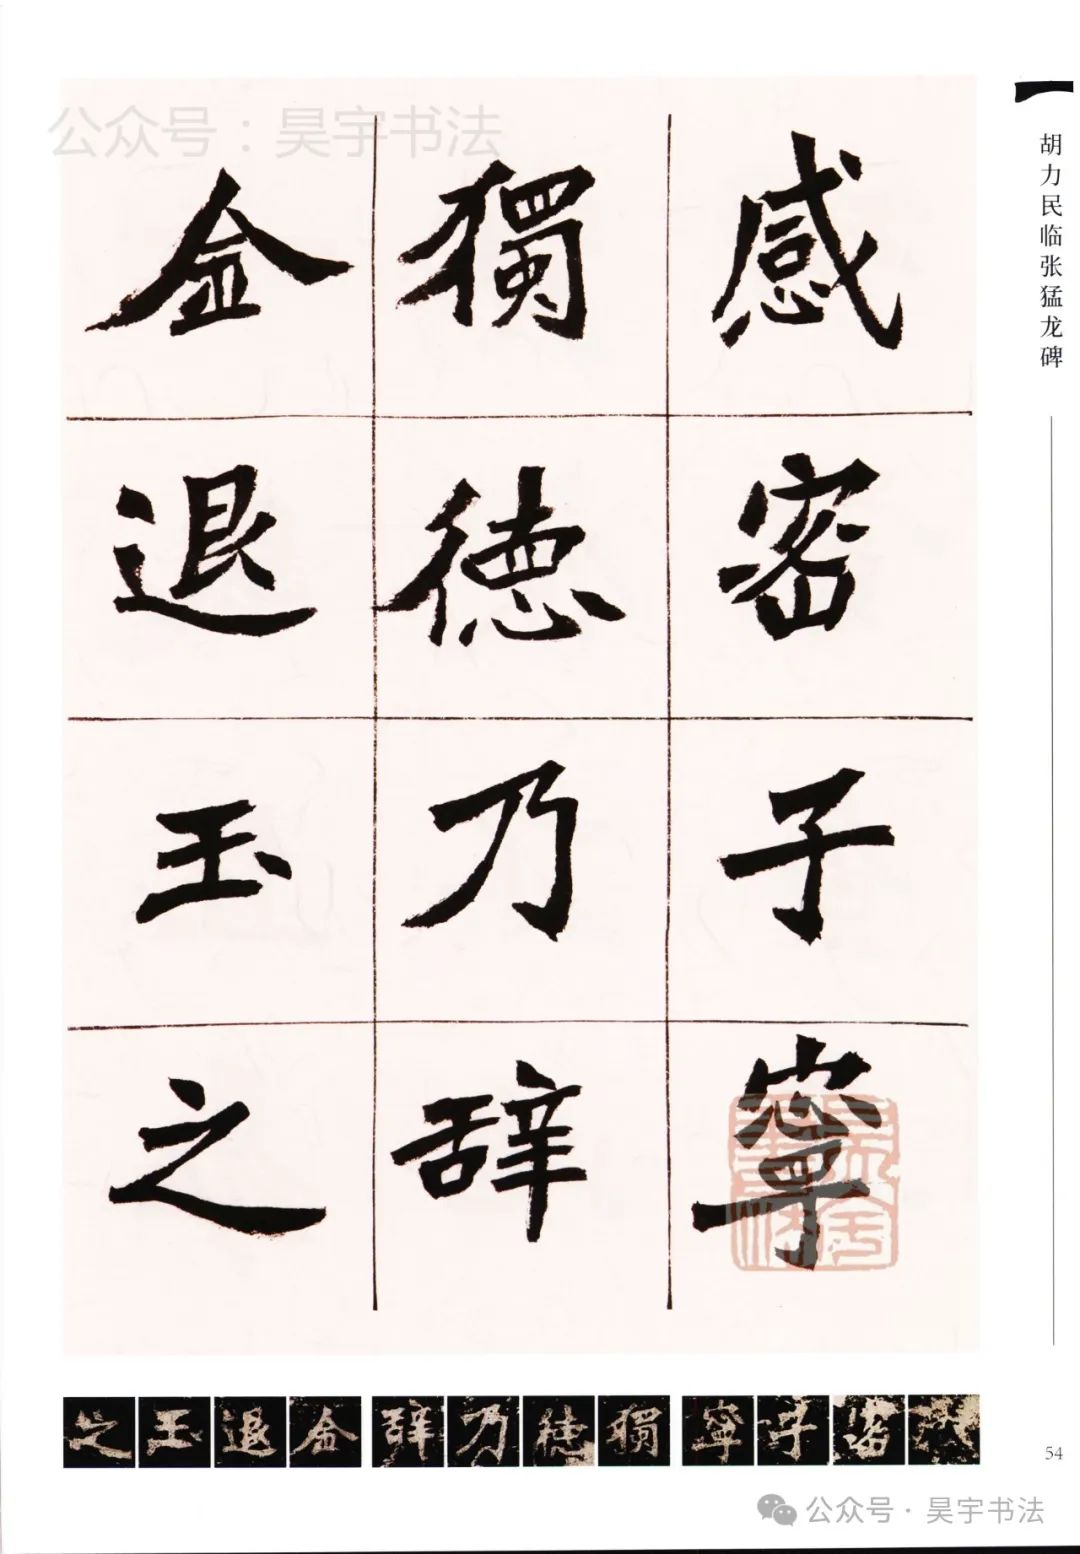 公众号：昊宇书法
胡力民临张猛龙碑
感密子寧
獨德乃辞
金退玉之
之玉退金辞乃德獨寧子密感
54
公众号·昊宇书法